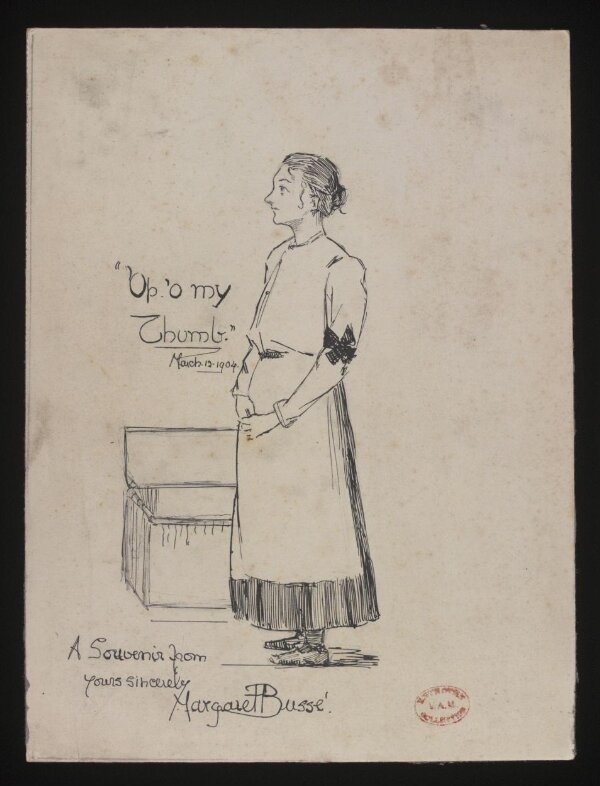 "Op.'o my
Thumb."
March.13.1904.
A Souvenir from
yours sincerely
Margaret Bussé.
V.A.M.
COLLECTION